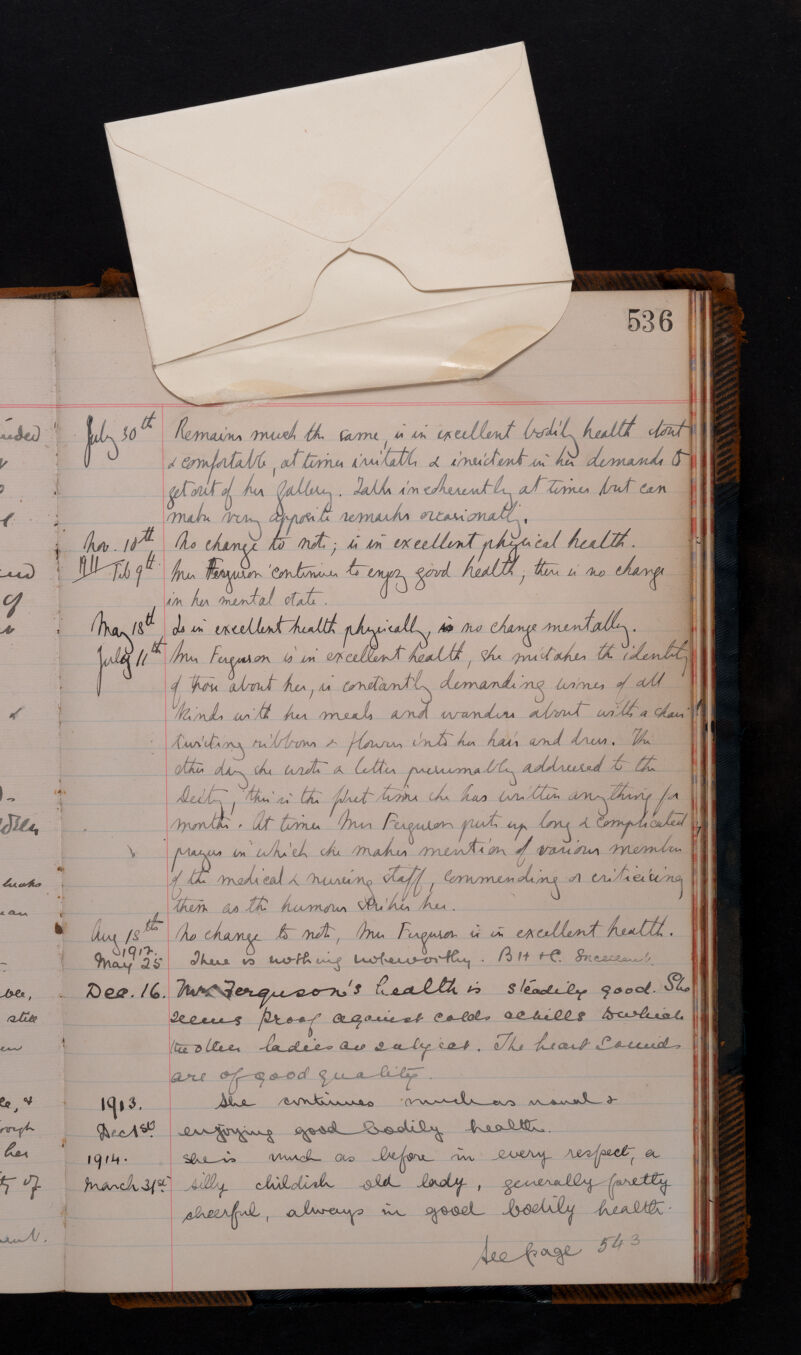 536
July 30th Remains much the same, is in excellent bodily health stout
& comfortable, at times irritable & insistent in her demands to
get out of her gallery. Talks incoherently at times but can
make very apposite remarks occasionally.
Nov. 10th No change to note; is in excellent physical health.
1911 Feb 9th Mrs Ferguson continues to enjoy good health, there is no change
in her mental state.
May 18th Is in excellent health physically, no change mentally.
July 11th Mrs Ferguson is in excellent health, she mistakes the identity
of those about her, is constantly demanding wines of all
kinds with her meals and wanders about with a chair
twisting ribbons & flowers into her hair and dress. The
other day she wrote a letter presumably addressed to the
Deity, this is the first time she has written anything for
months. At times Mrs Ferguson puts up long & complicated
prayers in which she makes mention of various members
of the medical & nursing staff, commending or criticising
them as the humour strikes her.
Aug 18th No change to note, Mrs Ferguson is in excellent health.
1912.
May 25 There is nothing noteworthy. B H & C. Excellent.
Dec. 16. Mrs Ferguson's health is steadily good. She
seems proof against colds & chills to which
the other ladies are subject. The heart sounds
are of good quality.
1913. She continues much as usual &
Dec 1st enjoying good bodily health.
1914. She is much as before in every respect, a
March 31st silly childish old lady, generally pretty
cheerful, always in good bodily health.
See page 543